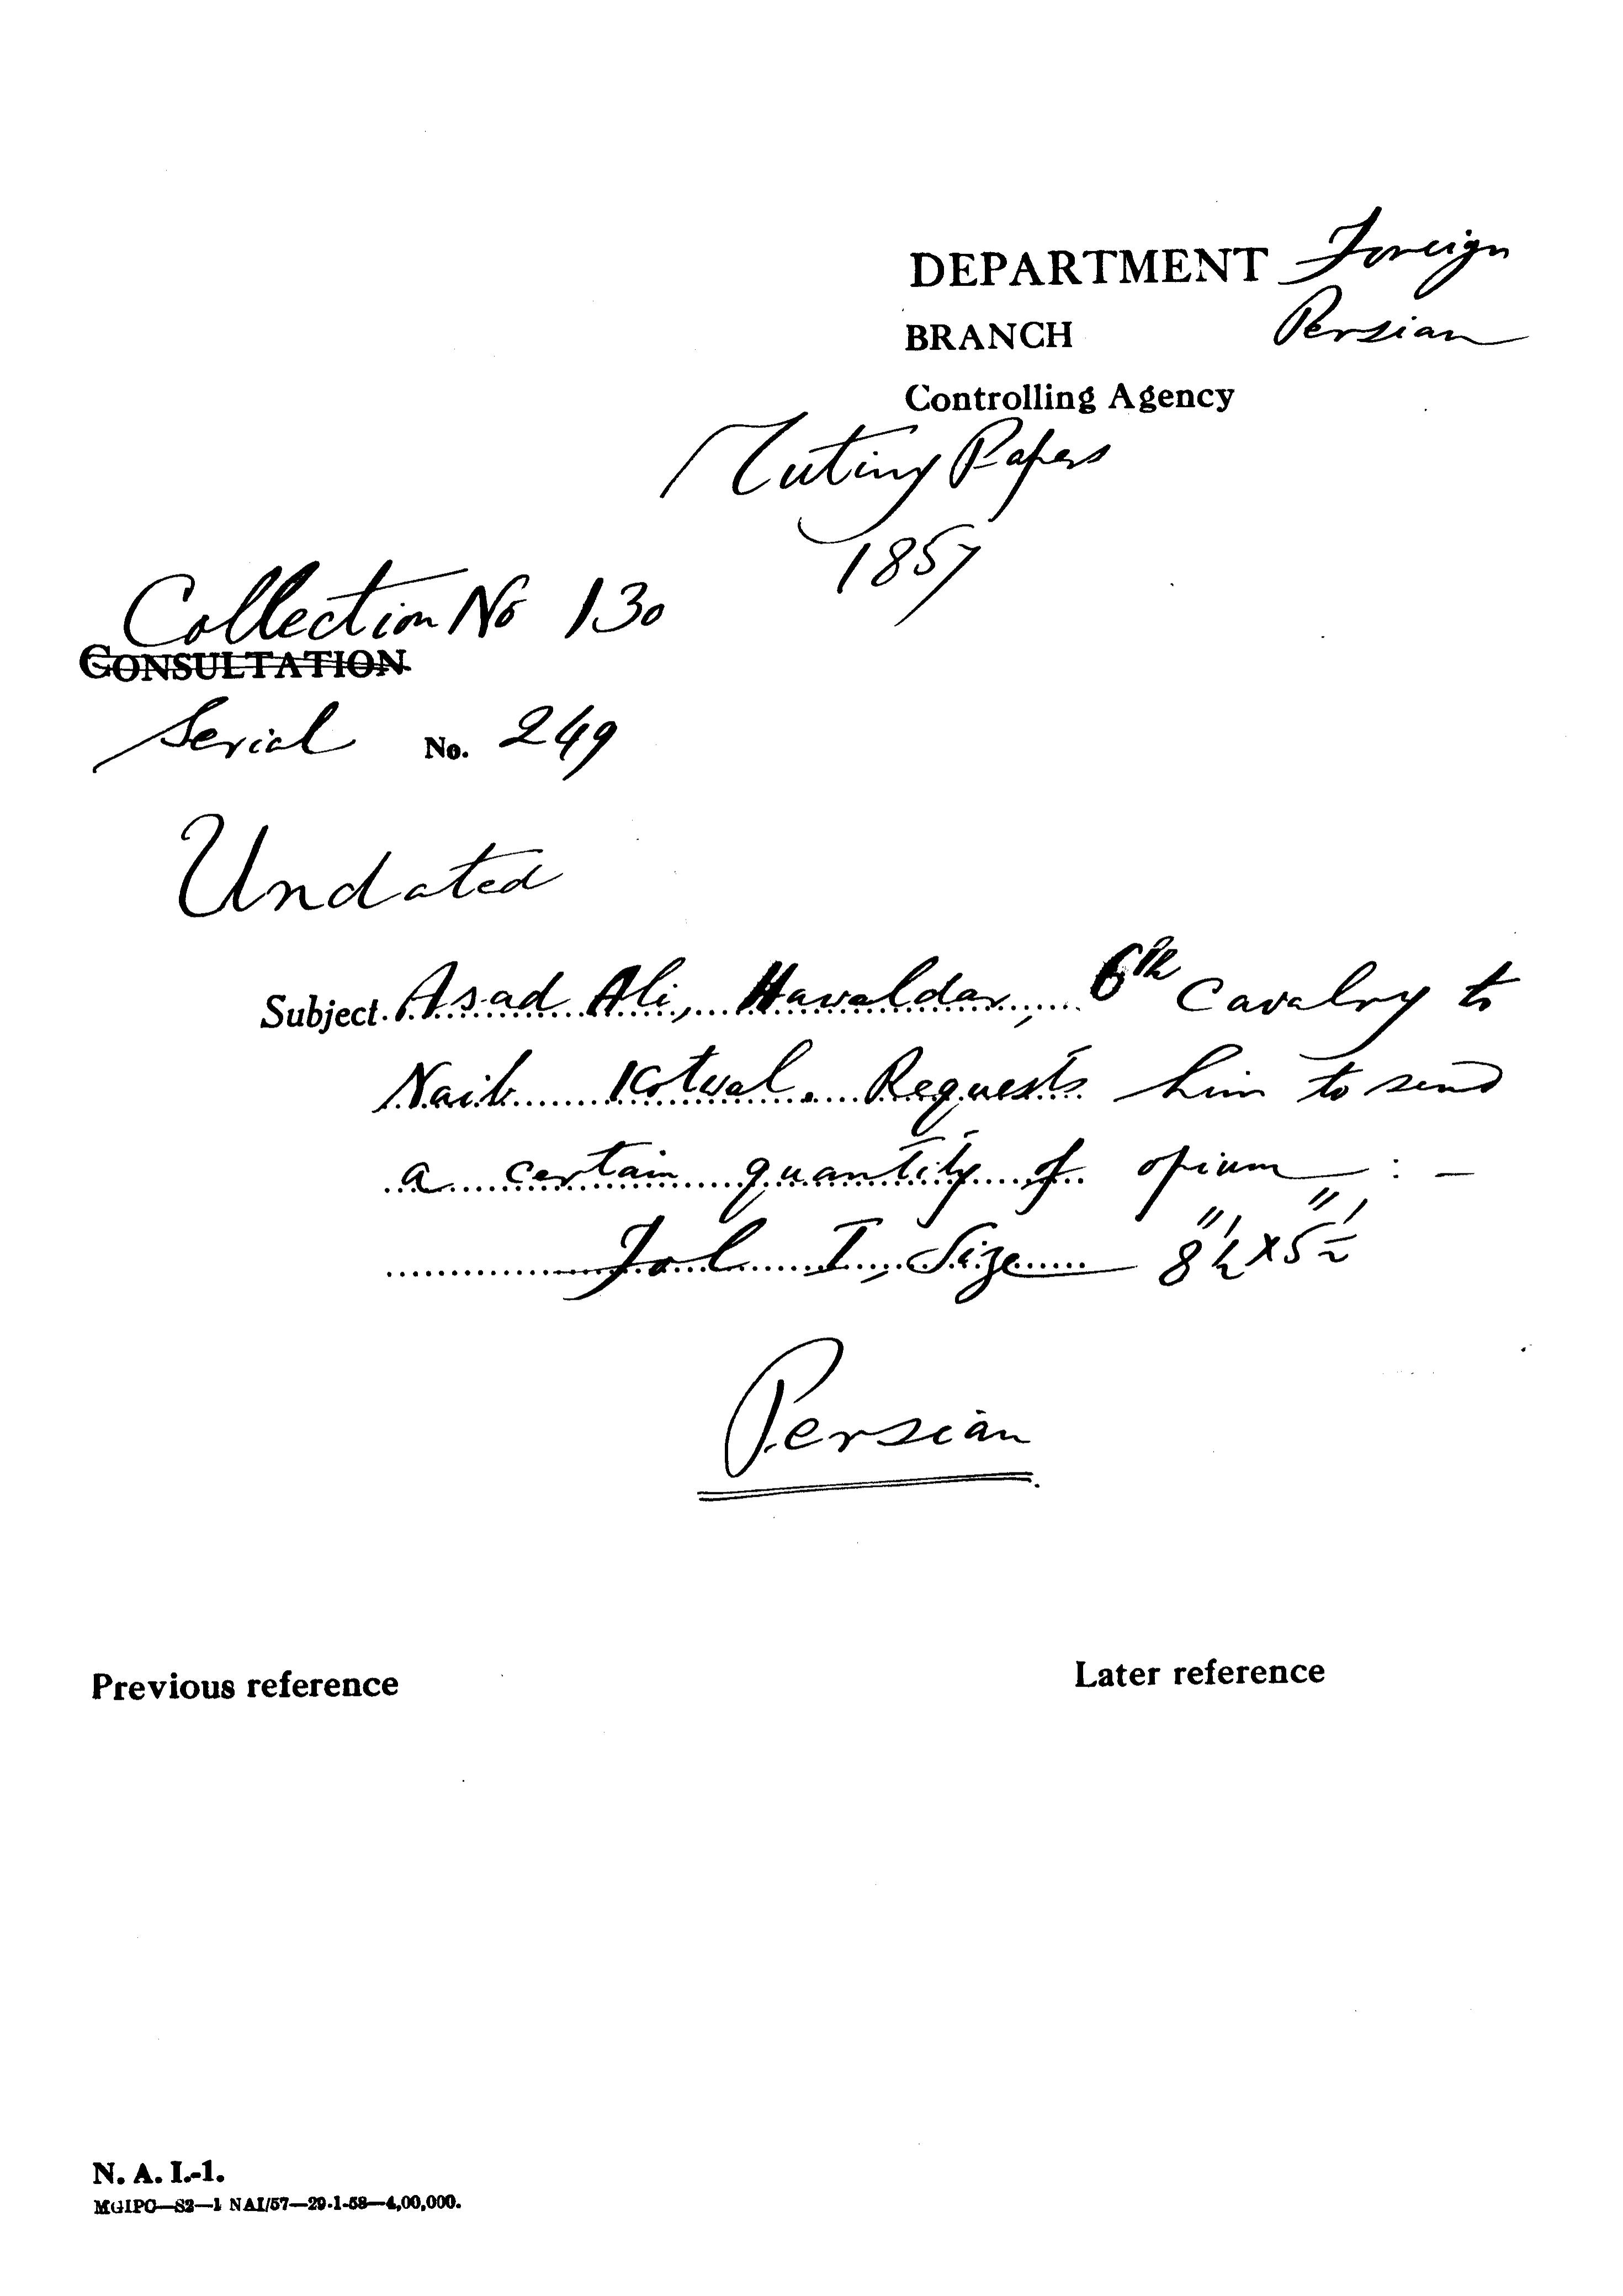 DEPARTMENT Foreign
BRANCH Persian
Controlling Agency
Mutiny Papers
1857
Collection No 130
CONSULTATION
Serial No. 249
Undated
Subject Asad Ali, Hawaldar, 6th Cavalry to
Naib Kotwal. Requests him to send
a certain quantity of opium : —
Fol I, Size 8½" x 5½"
Persian
Previous reference
Later reference
N. A. I.-1.
MGIPC—S2—1 NAI/57—29-1-58—4,00,000.